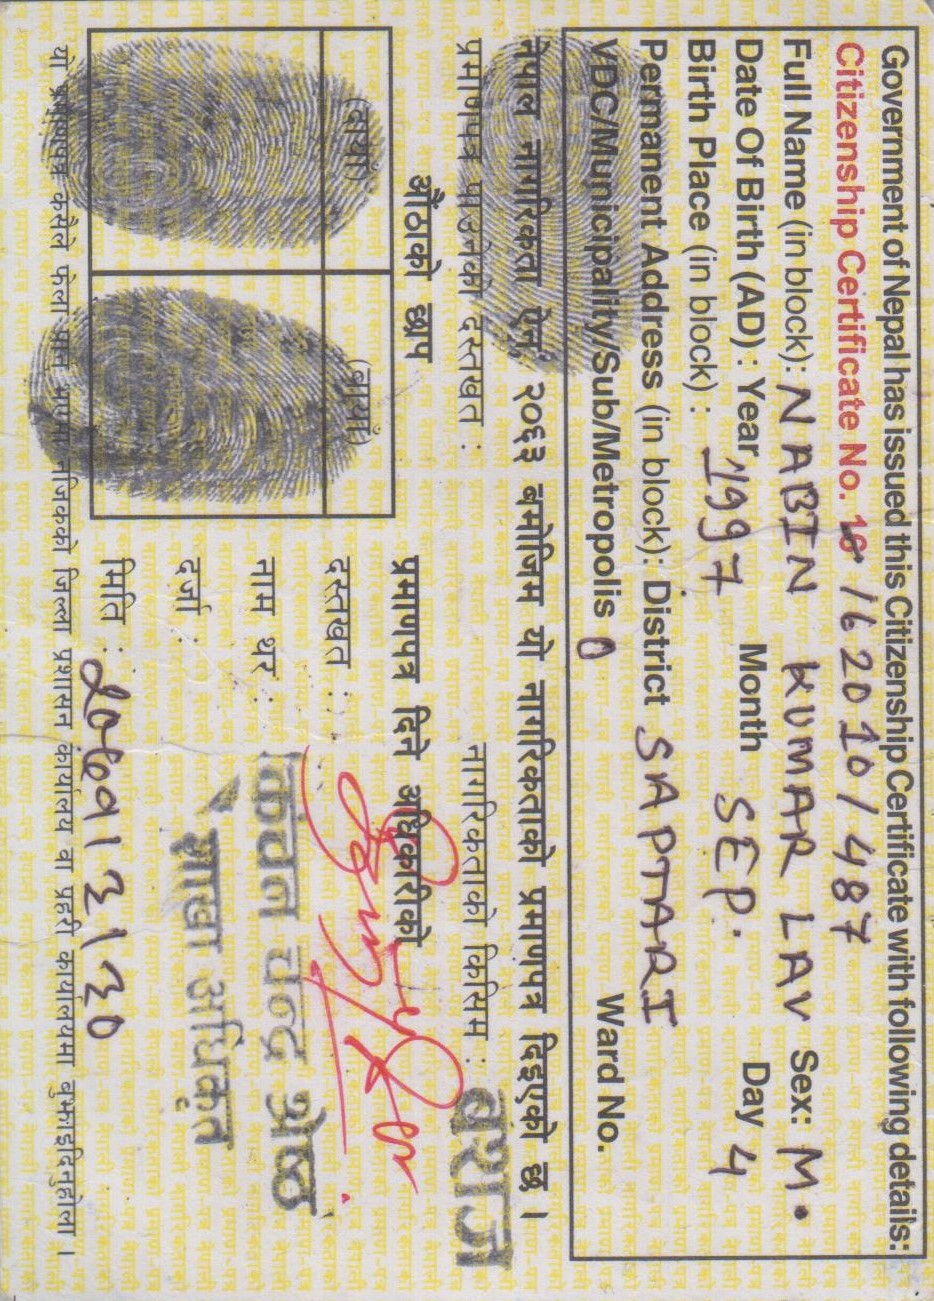 Government of Nepal has issued this Citizenship Certificate with following details:
Citizenship Certificate No. 16 / 162010/487
Full Name (in block): NABIN KUMAR LAV Sex: M.
Date Of Birth (AD) : Year 1997 Month SEP. Day 4
Birth Place (in block) :
Permanent Address (in block): District SAPTARI
VDC/Municipality/Sub/Metropolis 0 Ward No.
नेपाल नागरिकता ऐन, २०६३ बमोजिम यो नागरिकताको प्रमाणपत्र दिइएको छ ।
प्रमाणपत्र पाउनेको दस्तखत :
नागरिकताको किसिम : वंशज
औंठाको छाप
(दायाँ) (बायाँ)
प्रमाणपत्र दिने अधिकारीको
दस्तखत :
नाम थर : चन्द्र श्रेष्ठ
दर्जा : शाखा अधिकृत
मिति : 2069/3/30
यो प्रमाणपत्र कसैले फेला पारे नजिकको जिल्ला प्रशासन कार्यालय वा प्रहरी कार्यालयमा बुझाइदिनुहोला ।